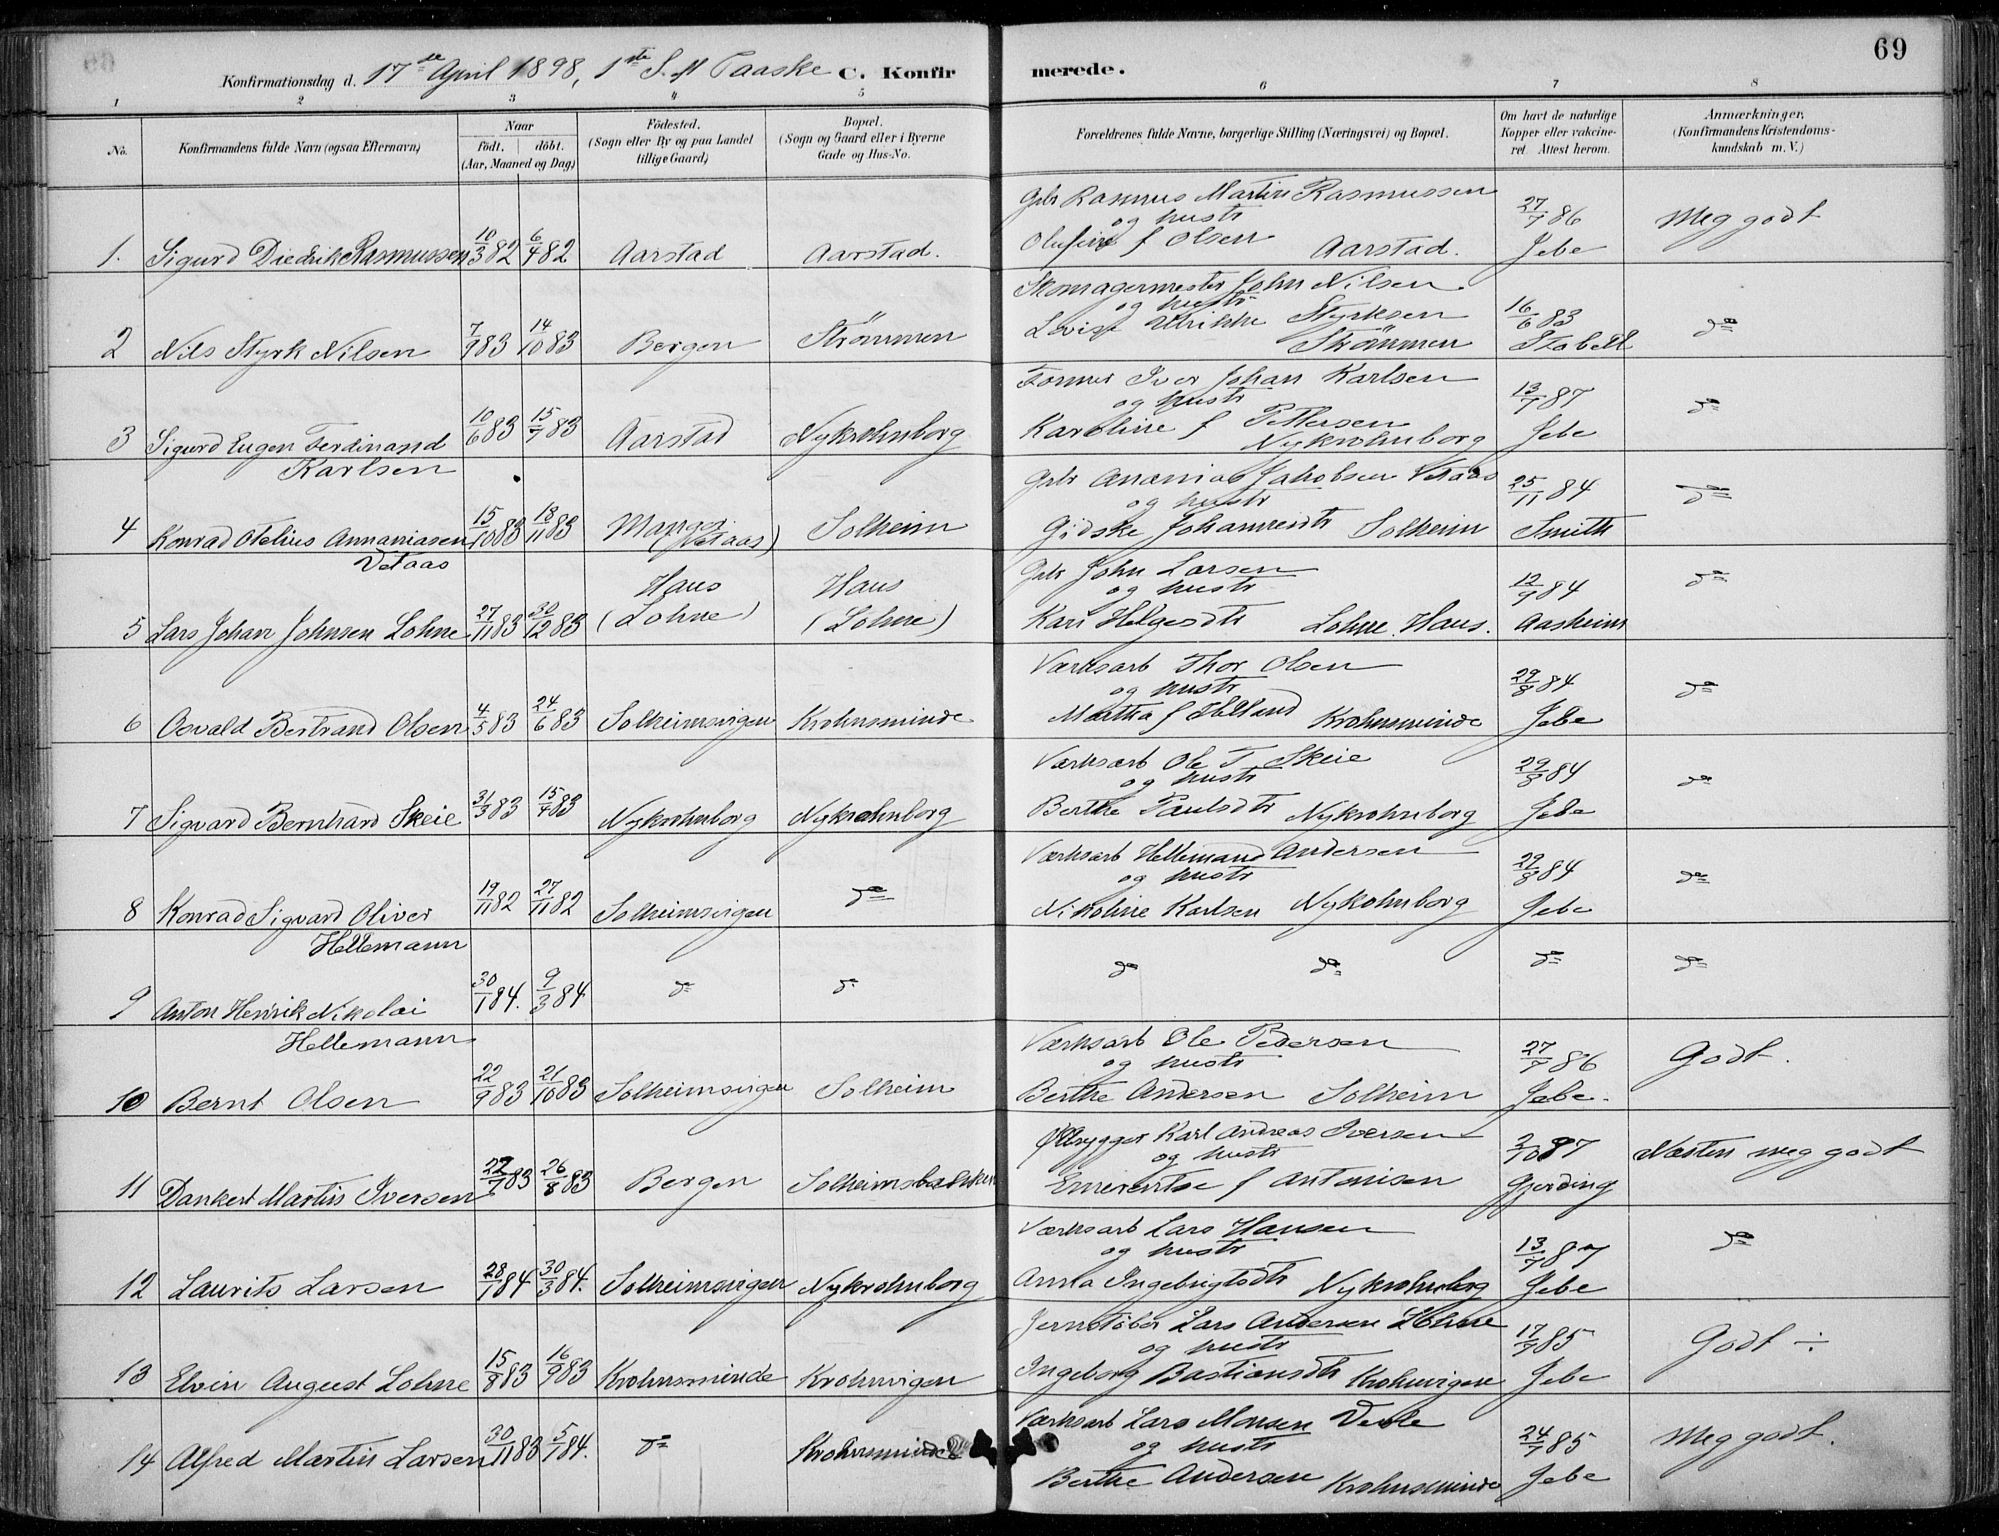 69
Konfirmationsdag d. 17de April 1898, 1ste S. ft Paaske C. Konfirmerede.
1 2 3 4 5 6 7 8
No.
Konfirmandens fulde Navn (ogsaa Efternavn)
Naar
født. døbt.
(Aar, Maaned og Dag)
Fødested.
(Sogn eller By og paa Landet
tillige Gaard)
Bopæl.
(Sogn og Gaard eller i Byerne
Gade og Hus-No.
Forældrenes fulde Navne, borgerlige Stilling (Næringsvei) og Bopæl.
Om havt de naturlige
Kopper eller vakcine-
ret. Attest herom.
Anmærkninger,
(Konfirmandens Kristendoms-
kundskab m. V.)
Gbr Rasmus Martin Rasmussen 27/7 86 Meg godt
og hustr
1. Sigurd Diedrik Rasmussen 10/3 82 6/4 82 Aarstad Aarstad. f Olsen Aarstad. Jebe
Skomagermester John Nilsen
og hustr 16/6 83 do
Lovise Ulrikke Styrksen
2 Nils Styrk Nilsen 7/9 83 14/10 83 Bergen Strømmen Strømmen Stabell
Former Iver Johan Karlsen 13/7 87 do
og hustr
3 Sigurd Eugen Ferdinand 10/6 83 15/7 83 Aarstad Nykrohnborg Karoline f Pettersen Jebe
Karlsen Nykrohnborg
Gbr Ananias Jakobsen Vetaas 25/11 84 do
og hustr
4 Konrad Otelius Annaniasen 15/10 83 18/11 83 Manger (Vetaas) Solheim Gidske Johannesdtr Solheim Smith
Vetaas
Haus Haus Gbr John Larsen 12/9 84 do
og hustr
5 Lars Johan Johnsen Lohne 27/11 83 30/12 83 (Lohne) (Lohne) Kari Helgesdtr Lohne, Haus. Aasheim
Værksarb Thor Olsen 29/8 84 do
og hustr
6 Osvald Bertrand Olsen 4/5 83 24/6 83 Solheimsvigen Krohnsminde Martha f Helland Krohnsminde Jebe
Værksarb Ole T Skeie 29/8 84 do
og hustr
7 Sigvard Bernhard Skeie 31/3 83 15/4 83 Nykrohnborg Nykrohnborg Berthe Paulsdtr Nykrohnborg Jebe
Værksarb Hellemand Andersen 29/8 84 do
og hustr
8 Konrad Sigvard Oliver 19/11 82 27/11 82 Solheimsvigen do Nikoline Karlsen Nykohnborg Jebe
Hellemann
9 Anton Henrik Nikolai 30/1 84. 9/3 84 do do do do do do
Hellemann
Værksarb Ole Pedersen 27/7 86 Godt.
og hustr
10 Bernt Olsen 22/9 83 21/10 83 Solheimsvigen Solheim Berthe Andersen Solheim Jebe.
Ølbrygger Karl Andreas Iversen 2/10 87 Næsten meg godt
og hustr
11 Dankert Martin Iversen 22/7 83 26/8 83 Bergen Solheimsbakken Emerentse f Antonisen Gjerding
Værksarb Lars Hansen 13/7 87 do
og hustr
12 Laurits Larsen 28/1 84 30/3 84. Solheimsvigen Nykrohnborg Anna Ingebrigtsdtr Nykrohnborg Jebe
Jernstøber Lars Andersen Lohne 17/9 85 Godt ÷
og hustr
13 Elvin August Lohne 15/8 83 16/9 83 Krohnsminde Krohnvigen Ingeborg Bastiansdtr Krohnvigen Jebe
Værksarb Lars Monsen 24/7 85 Meg godt.
og hustr
14 Alfred Martin Larsen 30/11 83 5/1 84. do Krohnsminde Berthe Andersen Krohnsminde Jebe